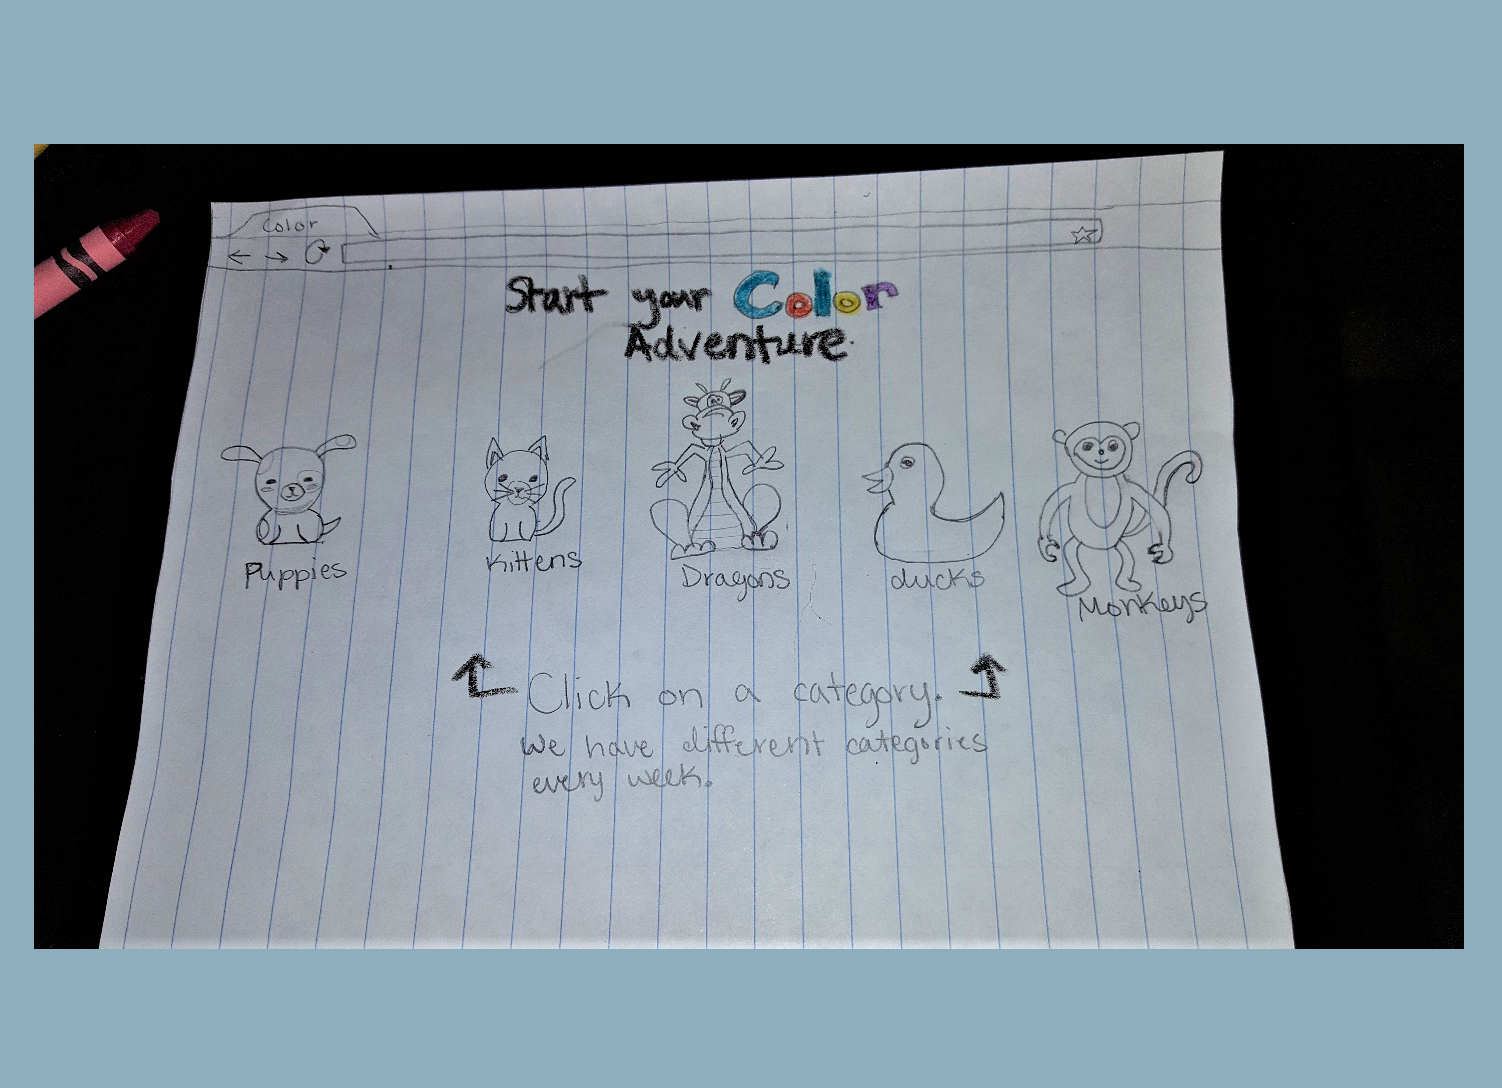 Color
Start your Color
Adventure.
Puppies
Kittens
Dragons
ducks
Monkeys
Click on a category.
We have different categories
every week.